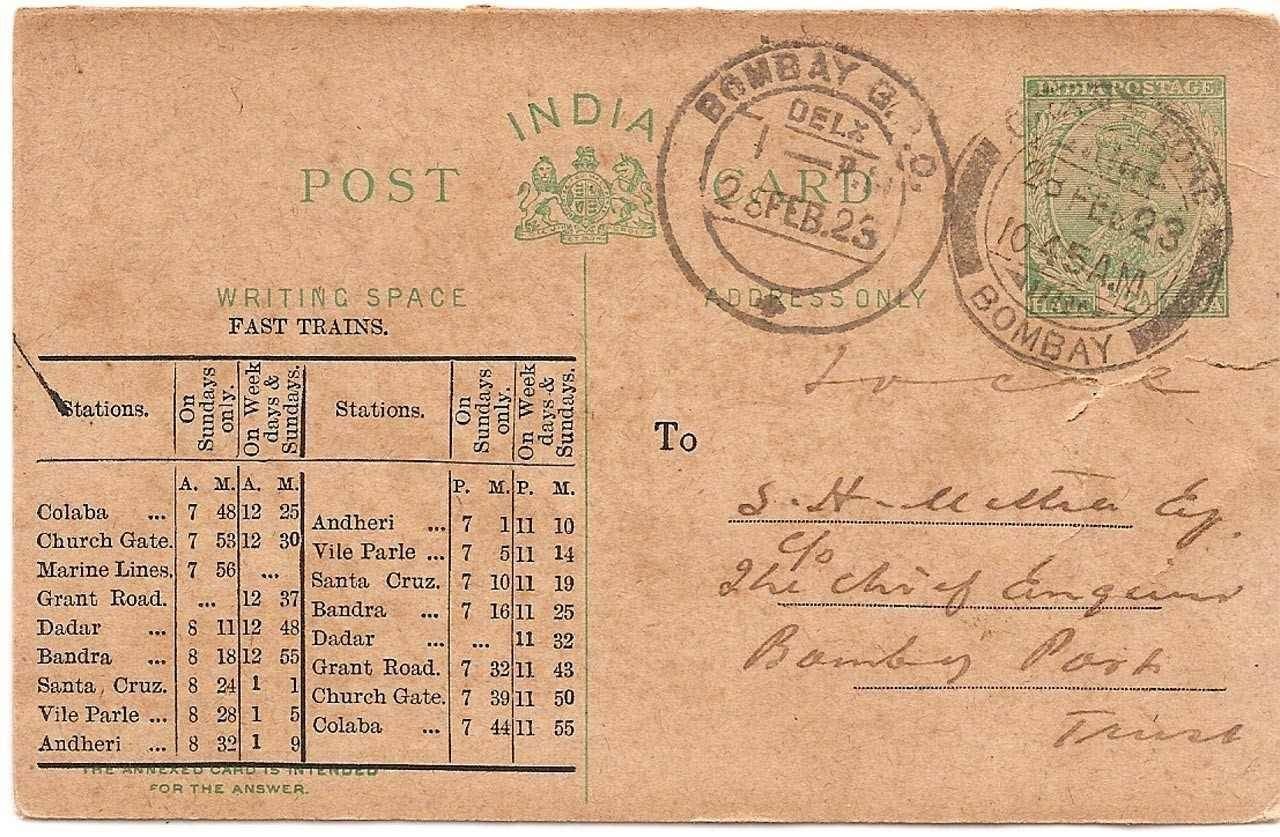 INDIA
POST CARD
WRITING SPACE
ADDRESS ONLY
INDIA POSTAGE
HALF ANNA
BOMBAY G.P.O.
DELY.
1 P.M.
28 FEB. 23
28 FEB 23
10.45 A.M.
BOMBAY
FAST TRAINS.
Stations. On Sundays only. On Week days & Sundays. Stations. On Sundays only. On Week days & Sundays.
A. M. A. M. P. M. P. M.
Colaba ... 7 48 12 25
Church Gate. 7 53 12 30
Marine Lines. 7 56 ...
Grant Road. ... 12 37
Dadar ... 8 11 12 48
Bandra ... 8 18 12 55
Santa Cruz. 8 24 1 1
Vile Parle ... 8 28 1 5
Andheri ... 8 32 1 9
Andheri ... 7 1 11 10
Vile Parle ... 7 5 11 14
Santa Cruz. 7 10 11 19
Bandra ... 7 16 11 25
Dadar ... ... 11 32
Grant Road. 7 32 11 43
Church Gate. 7 39 11 50
Colaba ... 7 44 11 55
THE ANNEXED CARD IS INTENDED
FOR THE ANSWER.
Local
To
S. H. Mehta Esq.
c/o
The Chief Engineer
Bombay Port
Trust